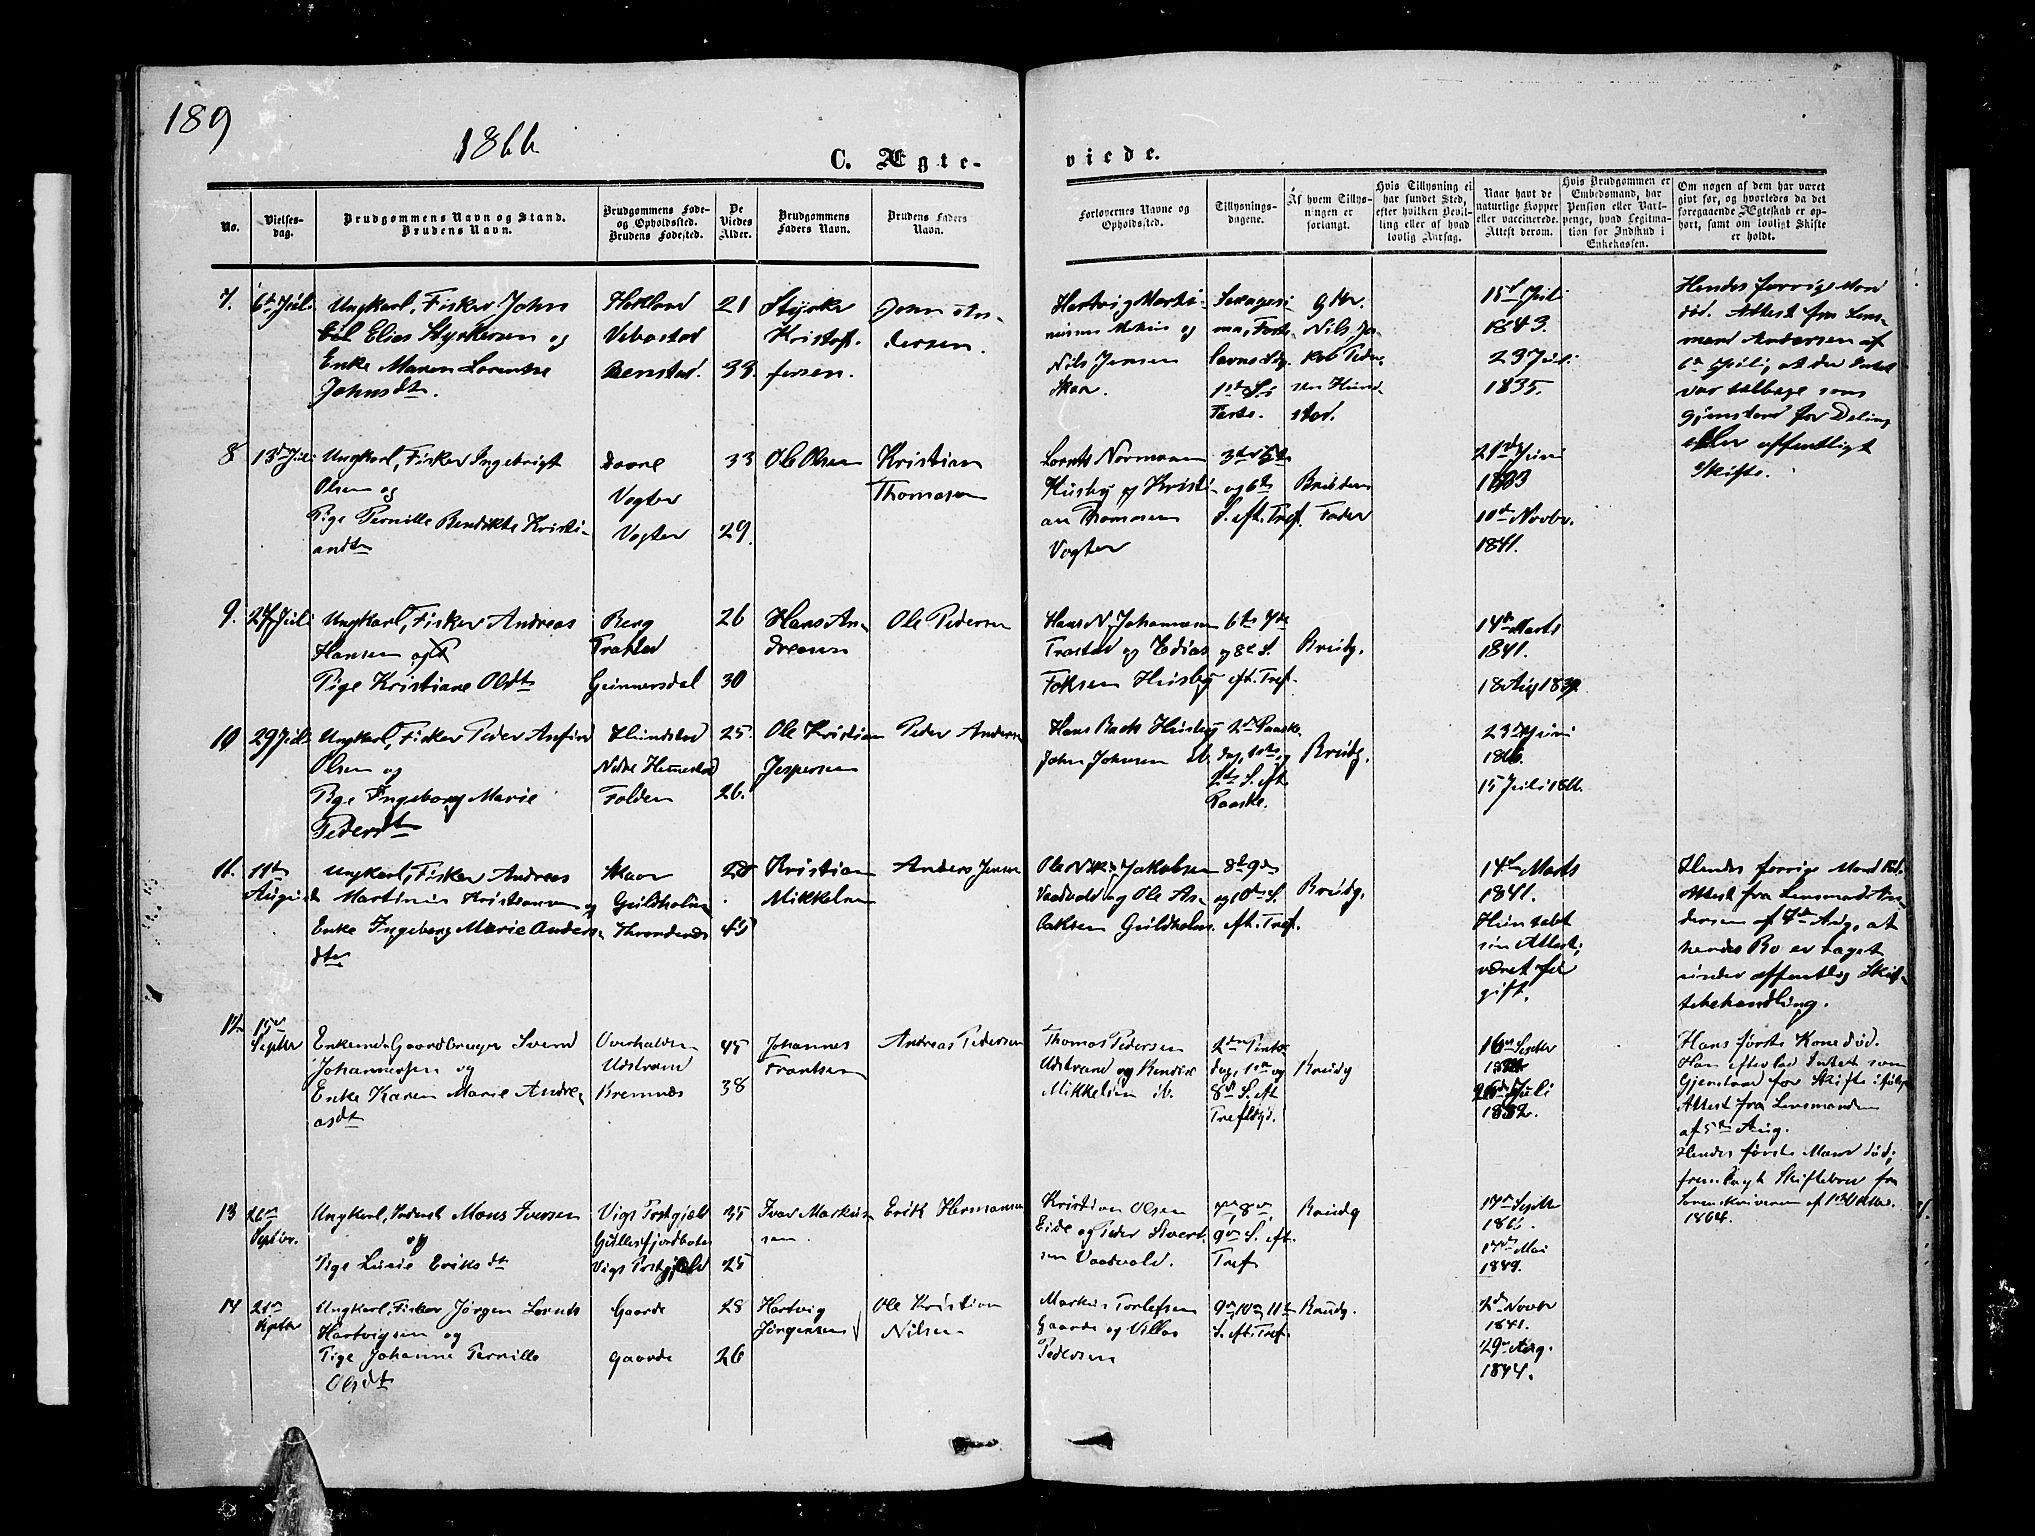 189
1866
C. Ægte-
viede.
No.
Vielses-
dag.
Brudgommens Navn og Stand.
Brudens Navn.
Brudgommens Føde-
og Opholdssted.
Brudens Fødested.
De
Viedes
Alder.
Brudgommens
Faders Navn.
Brudens Faders
Navn.
Forlovernes Navne og
Opholdssted.
Tillysnings-
dagene.
Af hvem Tillys-
ningen er
forlangt.
Hvis Tillysning ei
har fundet Sted,
efter hvilken Bevil-
ling eller af hvad
lovlig Aarsag.
Naar havt de
naturlige Kopper
eller vaccinerede.
Attest derom.
Hvis Brudgommen er
Embedsmand, har
Pension eller Vart-
penge, hvad Legitima-
tion for Indskud i
Enkekassen.
Om nogen af dem har været
givt for, og hvorledes da det
foregaaende Ægteskab er op-
hørt, samt om lovligt Skifte
er holdt.
7. 6te Juli
Ungkarl, Fisker John
Elias Styrkersen og
Enke Maren Lorentse
Johnsdtr.
21
33.
Styrker
Kristof-
fersen.
John An-
dersen.
Hartvig Marti-
og
Nils Jensen
Skar.
Nils Ja-
kob Peder-
sen Hund-
stad.
15de Juli
1843.
23 Juli
1835.
Hendes forrige Mand
død. Attest fra Lens-
mand Andersen af
6te Juli, at der Intet
var tilbage som
Gjenstand for Deling
eller offentligt
Skifte.
8 13de Juli
Ungkarl, Fisker Ingebrigt
Olsen og
Pige Pernille Bendikte Kristi-
andtr
Vogter
Vogter
33
29.
Ole Olsen
Kristian
Thomasen
Lornts Normann
Husby og Kristi-
an Thomasen
Vogter
3die 5te
og 6te
S. eft. Tref.
Brudens
Fader
21de Juni
10de Novbr.
1841.
9. 27 Juli
Ungkarl, Fisker Andreas
Hansen og
Pige Kristiane Olsdtr
Berg
Gunnersdal
26
30
Hans An-
dreasen
Ole Pedersen
Hans N. Johannesen
Trastad og Edias
Foksen Husby
6te 7de
og 8de S.
eft. Tref.
Brudg.
14de Marts
1841.
18 Aug 1839.
10 29 Juli
Ungkarl, Fisker Peder Anfind
Olsen og
Pige Ingeborg Marie
Pedersdtr
Hundstad
Folden
25.
26.
Ole Kristian
Jespersen
Peder Andersen
Hans Bach Husby
John Johnsen ib.
2den Paaske-
dag, 1ste og
2den S. eft.
Paaske.
Brudg.
23de Juni
15 Juli
11. 11te
August
Ungkarl, Fisker Andreas
Martinus Kristiansen og
Enke Ingeborg Marie Anders-
dtr
Skaar
Guldholm
Throndenæs
28
45
Kristian
Mikkelsen
Anders Jensen
Ole Jakobsen
Vaadvold og Ole Is-
aksen Guldholm.
8de 9de
og 10de S.
eft. Tref.
Brudg.
14de Marts
1841.
Hun tabt
sin Attest;
været før
gift.
Hendes forrige Mand død.
Attest fra Lensmand An-
dersen af Aug., at
hendes Bo er taget
under offentlig Skif-
tebehandling.
12. 15de
Septbr
Enkemd. Gaardbruger Svend
Johannesen og
Enke Karen Marie Andre-
asdtr
Overhalden
Udstrand
Bremnæs
45
38
Johannes
Frantsen
Andreas Pedersen
Thomas Pedersen
Udstrand og Bendix
Mikkelsen ib.
2den Pintse-
dag, 1ste og
8de S. eft.
Brudg
16de Septbr
Juli
1832.
Hans første Kone død.
Han efterlod Intet som
Gjenstand for Skifte ifølge
Attest fra Lensmanden
af 5te Aug.
Hendes første Mand død;
fremlagt Skiftebrev fra
Sorenskriveren af
1864.
13 26de
Septbr.
Ungkarl, Mons Iversen
og
Pige Lusie Eriksdtr
Vigs Præstgjæld
Gullesfjordbotn
Vigs Præstgjæld
35
25
Ivar Markus-
sen.
Erik Hermansen
Kristian Olsen
Eide og Peder Sivert-
sen Vaadvold.
7de, 8de,
9de S. eft.
Tref
Brudg
17de Septbr
17de Mai
1849.
14
Septbr
Ungkarl, Fisker, Jørgen Lornts
Hartvigsen og
Pige Johanne Pernille
Olsdtr
Gaarde
Gaarde
28
26
Hartvig
Jørgensen
Ole Kristian
Nilsen
Markus Torlefsen
Gaarde og Villas
Pedersen
9de, 10de, 11te
S. eft. Tref
Brudg.
2de Novbr
1841.
29de Aug.
1844.